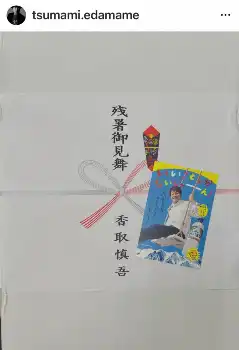 tsumami.edamame
残暑御見舞
香取慎吾